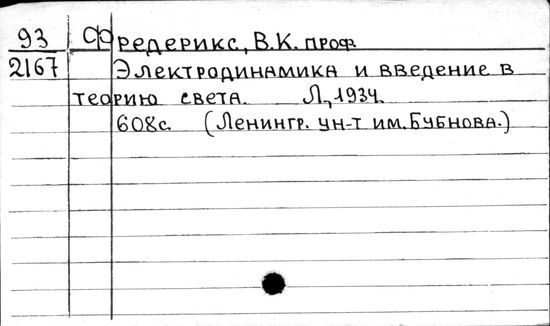 93 Фредерикс, В.К. проф.
2167 Электродинамика и введение в
теорию света. Л., 1934.
608с. (Ленингр. ун-т им. Бубнова.)